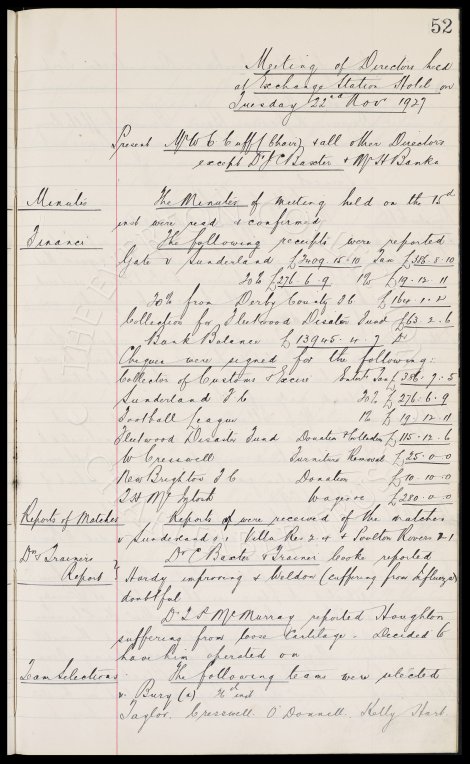 52
Meeting of Directors held
at Exchange Station Hotel on
Tuesday 22nd Nov 1927
Present Mr W C Cuff (Chair) & all other Directors
except Dr J C Baxter & Mr H Banks
Minutes The Minutes of meeting held on the 15th
inst were read & confirmed
Financi The following receipts were reported
Gate v Sunderland £2409-15-10 Tax £386-8-10
20% £276-6-9 1% £19-12-11
20% from Derby County FC £164-1-2
Collection for Fleetwood Disaster Fund £63-2-6
Bank Balance £13945-4-7 Dr
Cheques were signed for the following:
Collector of Customs & Excise Entertt Tax £386-9-5
Sunderland F C 20% £276-6-9
Football League 1% £19-12-11
Fleetwood Disaster Fund Donation & Collection £115-12-6
W Cresswell Furniture Removal £25-0-0
New Brighton F C Donation £10-10-0
T H McIntosh Wages &c £280-0-0
Reports of Matches Reports were received of the matches
v Sunderland Villa Res 2-4 & Poulton Rovers 2-1
Drs & Trainers Dr C Baxter & Trainer Cooke reported
Report Hardy improving & Weldon (suffering from Influenza)
doubtful
Dr T P McMurray reported Houghton
suffering from loose cartilage. Decided to
have him operated on
Team Selections The following teams were selected
v. Bury (a) inst
Taylor. Cresswell. O'Donnell. Kelly Hart